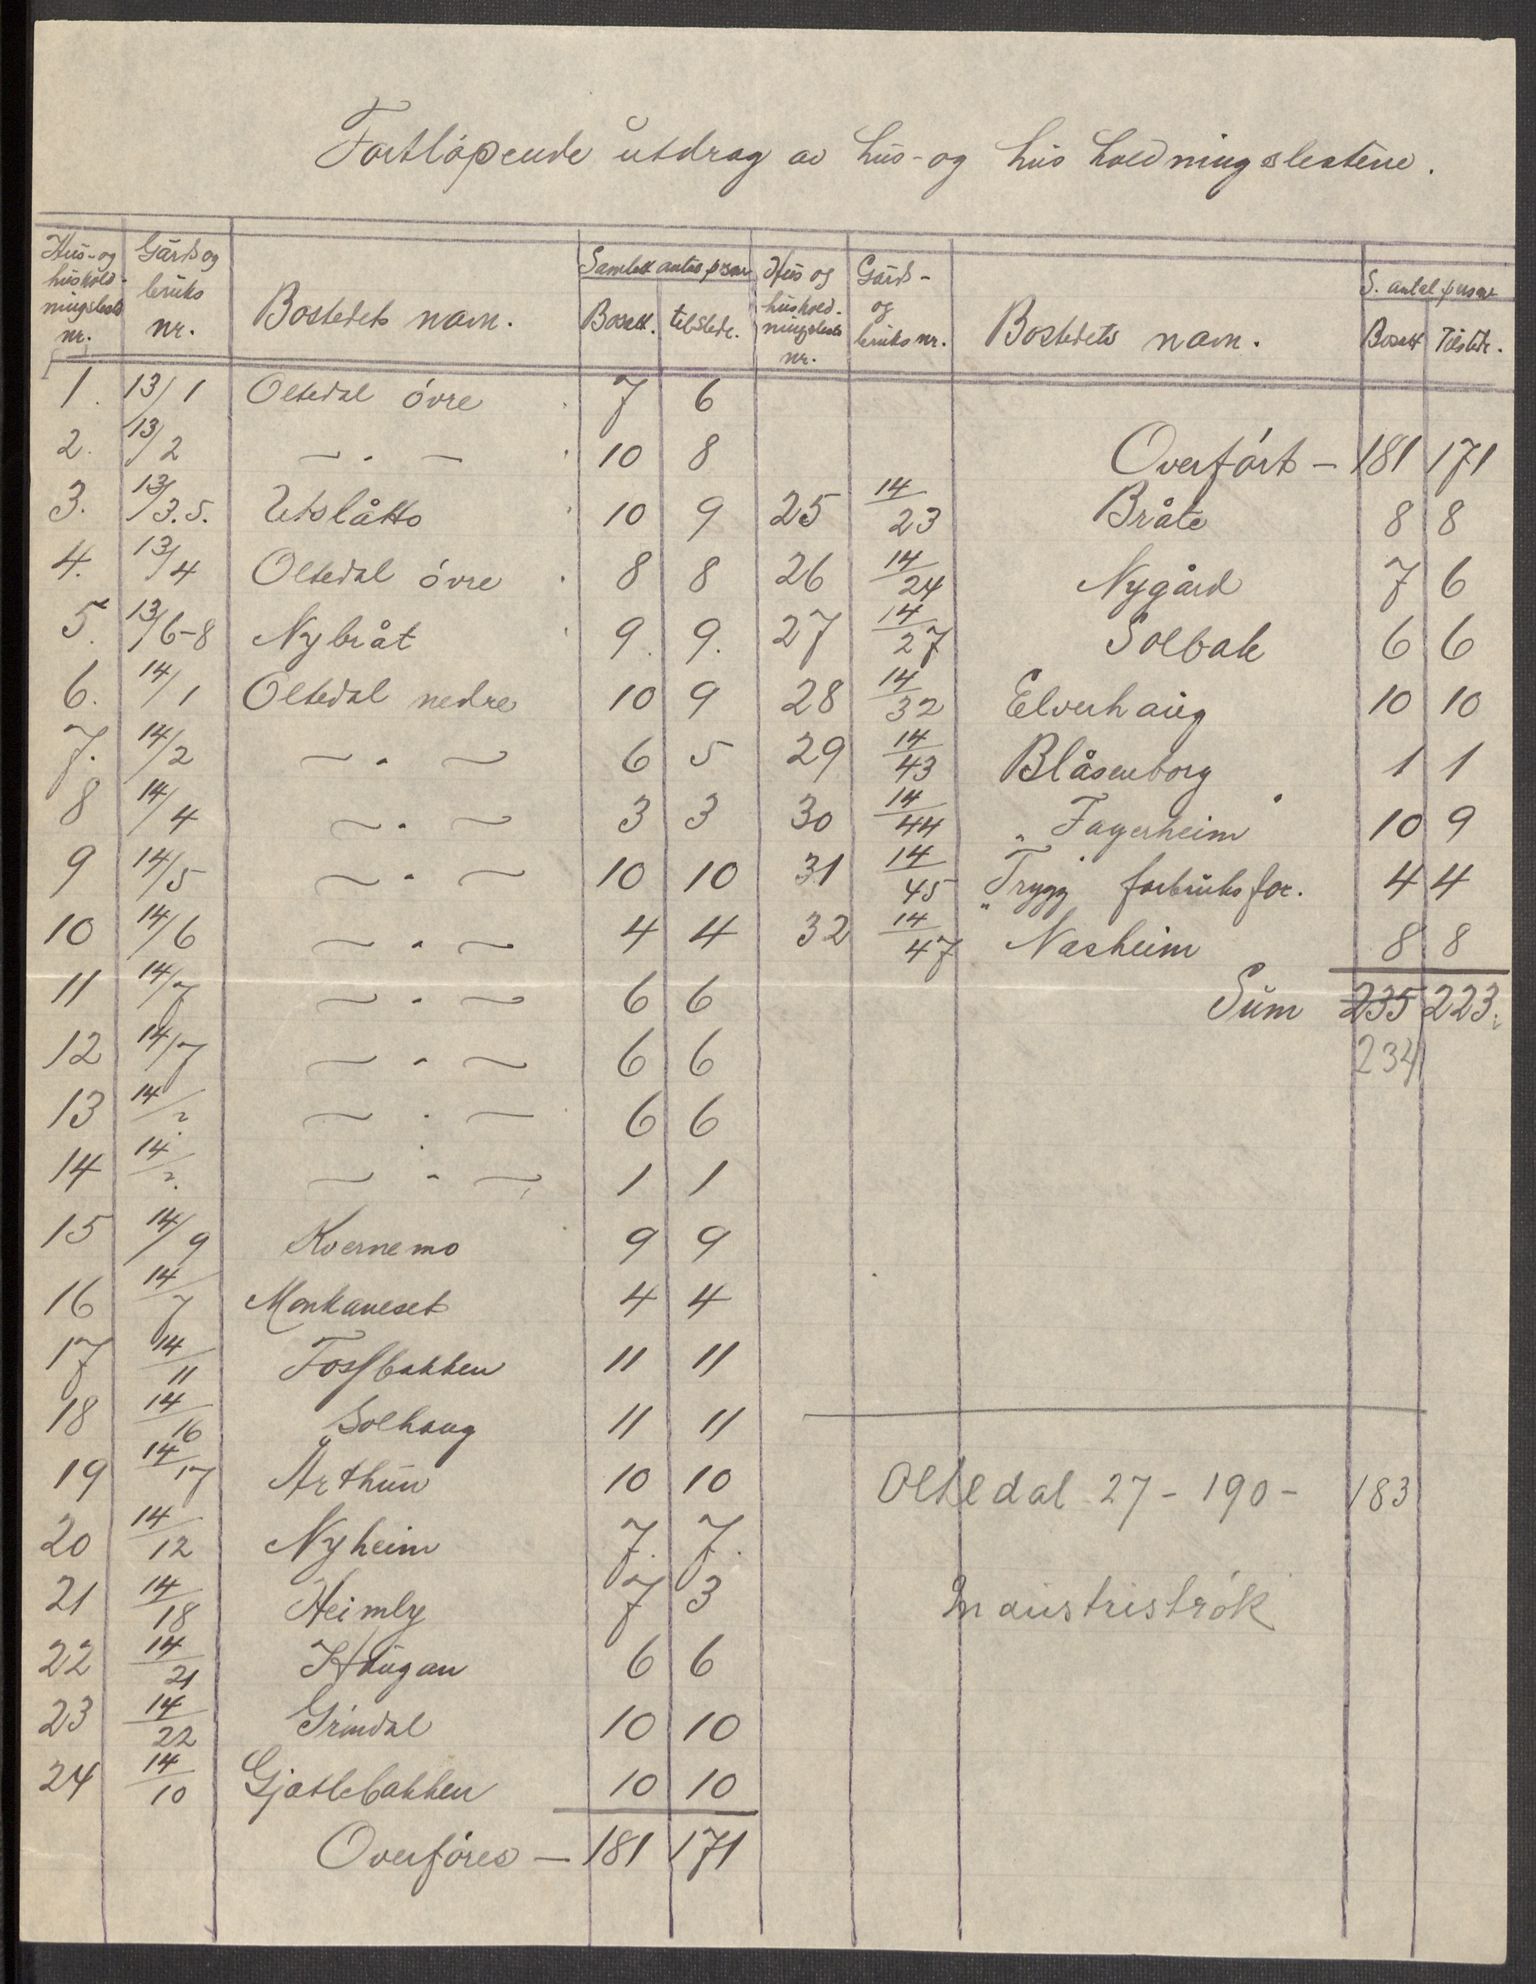 Fortløpende utdrag av hus- og husholdningslistene.
Hus- og hushold- ningsliste nr. | Gårds og bruks nr. | Bostedets navn. | Samlet antal pers. Bosatt. tilstede. | Hus og hushold- ningsliste nr. | Gårds- og bruks nr. | Bostedets navn. | S. antal pers. Bosatt Tilstede.
1. 13/1 Oltedal övre 7 6
2. 13/2 — " — 10 8
3. 13/3.5. Utslåtto 10 9
4. 13/4 Oltedal övre 8 8
5. 13/6-8 Nybråt 9. 9.
6. 14/1 Oltedal nedre 10 9
7. 14/2 — " — 6 5
8 14/4 — " — 3 3
9 14/5 — " — 10 10
10 14/6 — " — 4 4
11 14/7 — " — 6 6
12 14/7 — " — 6 6
13 14/? — " — 6 6
14 14/? — " — 1 1
15 14/9 Kvernemo 9 9
16 14/7 Monkaneset 4 4
17 14/11 Fossbakken 11 11
18 14/16 Solhaug 11 11
19 14/17 Årthun 10 10
20 14/12 Nyheim 7. 7.
21 14/18 Heimly 7 3
22 14/21 Haugan 6 6
23 14/22 Grindal 10 10
24 14/10 Gjatlebakken 10 10
Overföres — 181 171
Overfört — 181 171
25 14/23 Bråte 8 8
26 14/24 Nygård 7 6
27 14/27 Solbak 6 6
28 14/32 Elverhaug 10 10
29 14/43 Blåsenborg 1 1
30 14/44 " Fagerheim " 10 9
31 14/45 "Trygg" forbruksfor. 4 4
32 14/47 Nasheim 8 8
Sum 235 223.
234
Oltedal 27 - 190 - 183
Industriströk